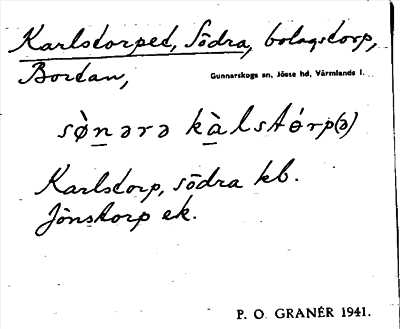 Karlstorpet, Södra, bolagstorp,
Bortan, Gunnarskogs sn, Jösse hd, Värmlands l.
sø̀n̲ərə kà̲lstórp(ə)
Karlstorp, södra kb.
Jönstorp ek.
P. O. GRANÉR 1941.